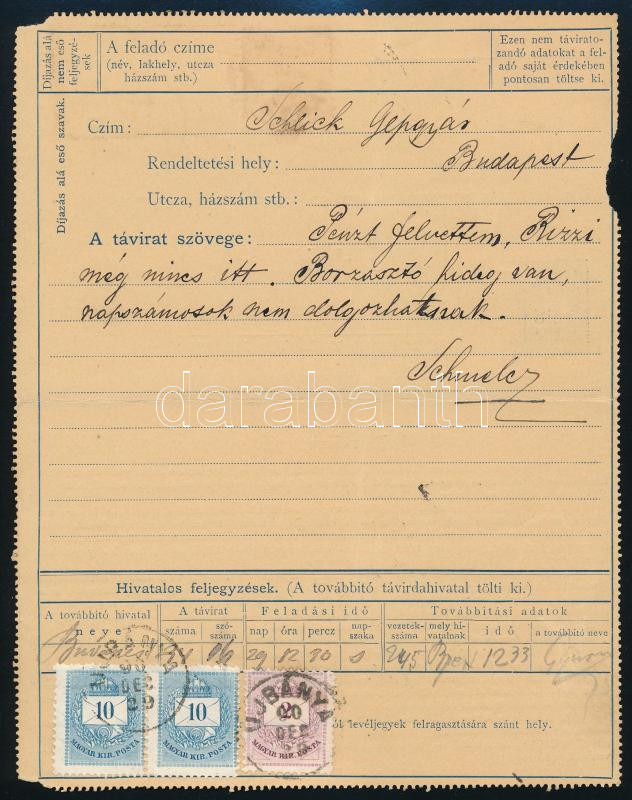 Díjazás alá
nem eső
feljegyzé-
sek
A feladó czíme
(név, lakhely, utcza
házszám stb.)
Ezen nem távirato-
zandó adatokat a fel-
adó saját érdekében
pontosan töltse ki.
Díjazás alá eső szavak.
Czím: Schlick Gepgyár
Rendeltetési hely: Budapest
Utcza, házszám stb.:
A távirat szövege: Pénzt felvettem, Rizzi
még nincs itt. Borzasztó hideg van,
napszámosok nem dolgozhatnak.
Schmelcz
darabanth
Hivatalos feljegyzések. (A továbbító távirdahivatal tölti ki.)
A továbbító hivatal
neve
A távirat
száma
szó-
száma
Feladási idő
nap
óra
percz
nap-
szaka
Továbbítási adatok
vezeték-
száma
mely hi-
vatalnak
idő
a továbbító neve
29 12 30 245 Bpest 12 33
ÚJBÁNYA
DEC
10
10
2
MAGYAR KIR. POSTA
MAGYAR KIR. POSTA
MAGYAR KIR. POSTA
ÚJBÁNYA
DEC
levéljegyek felragasztására szánt hely.